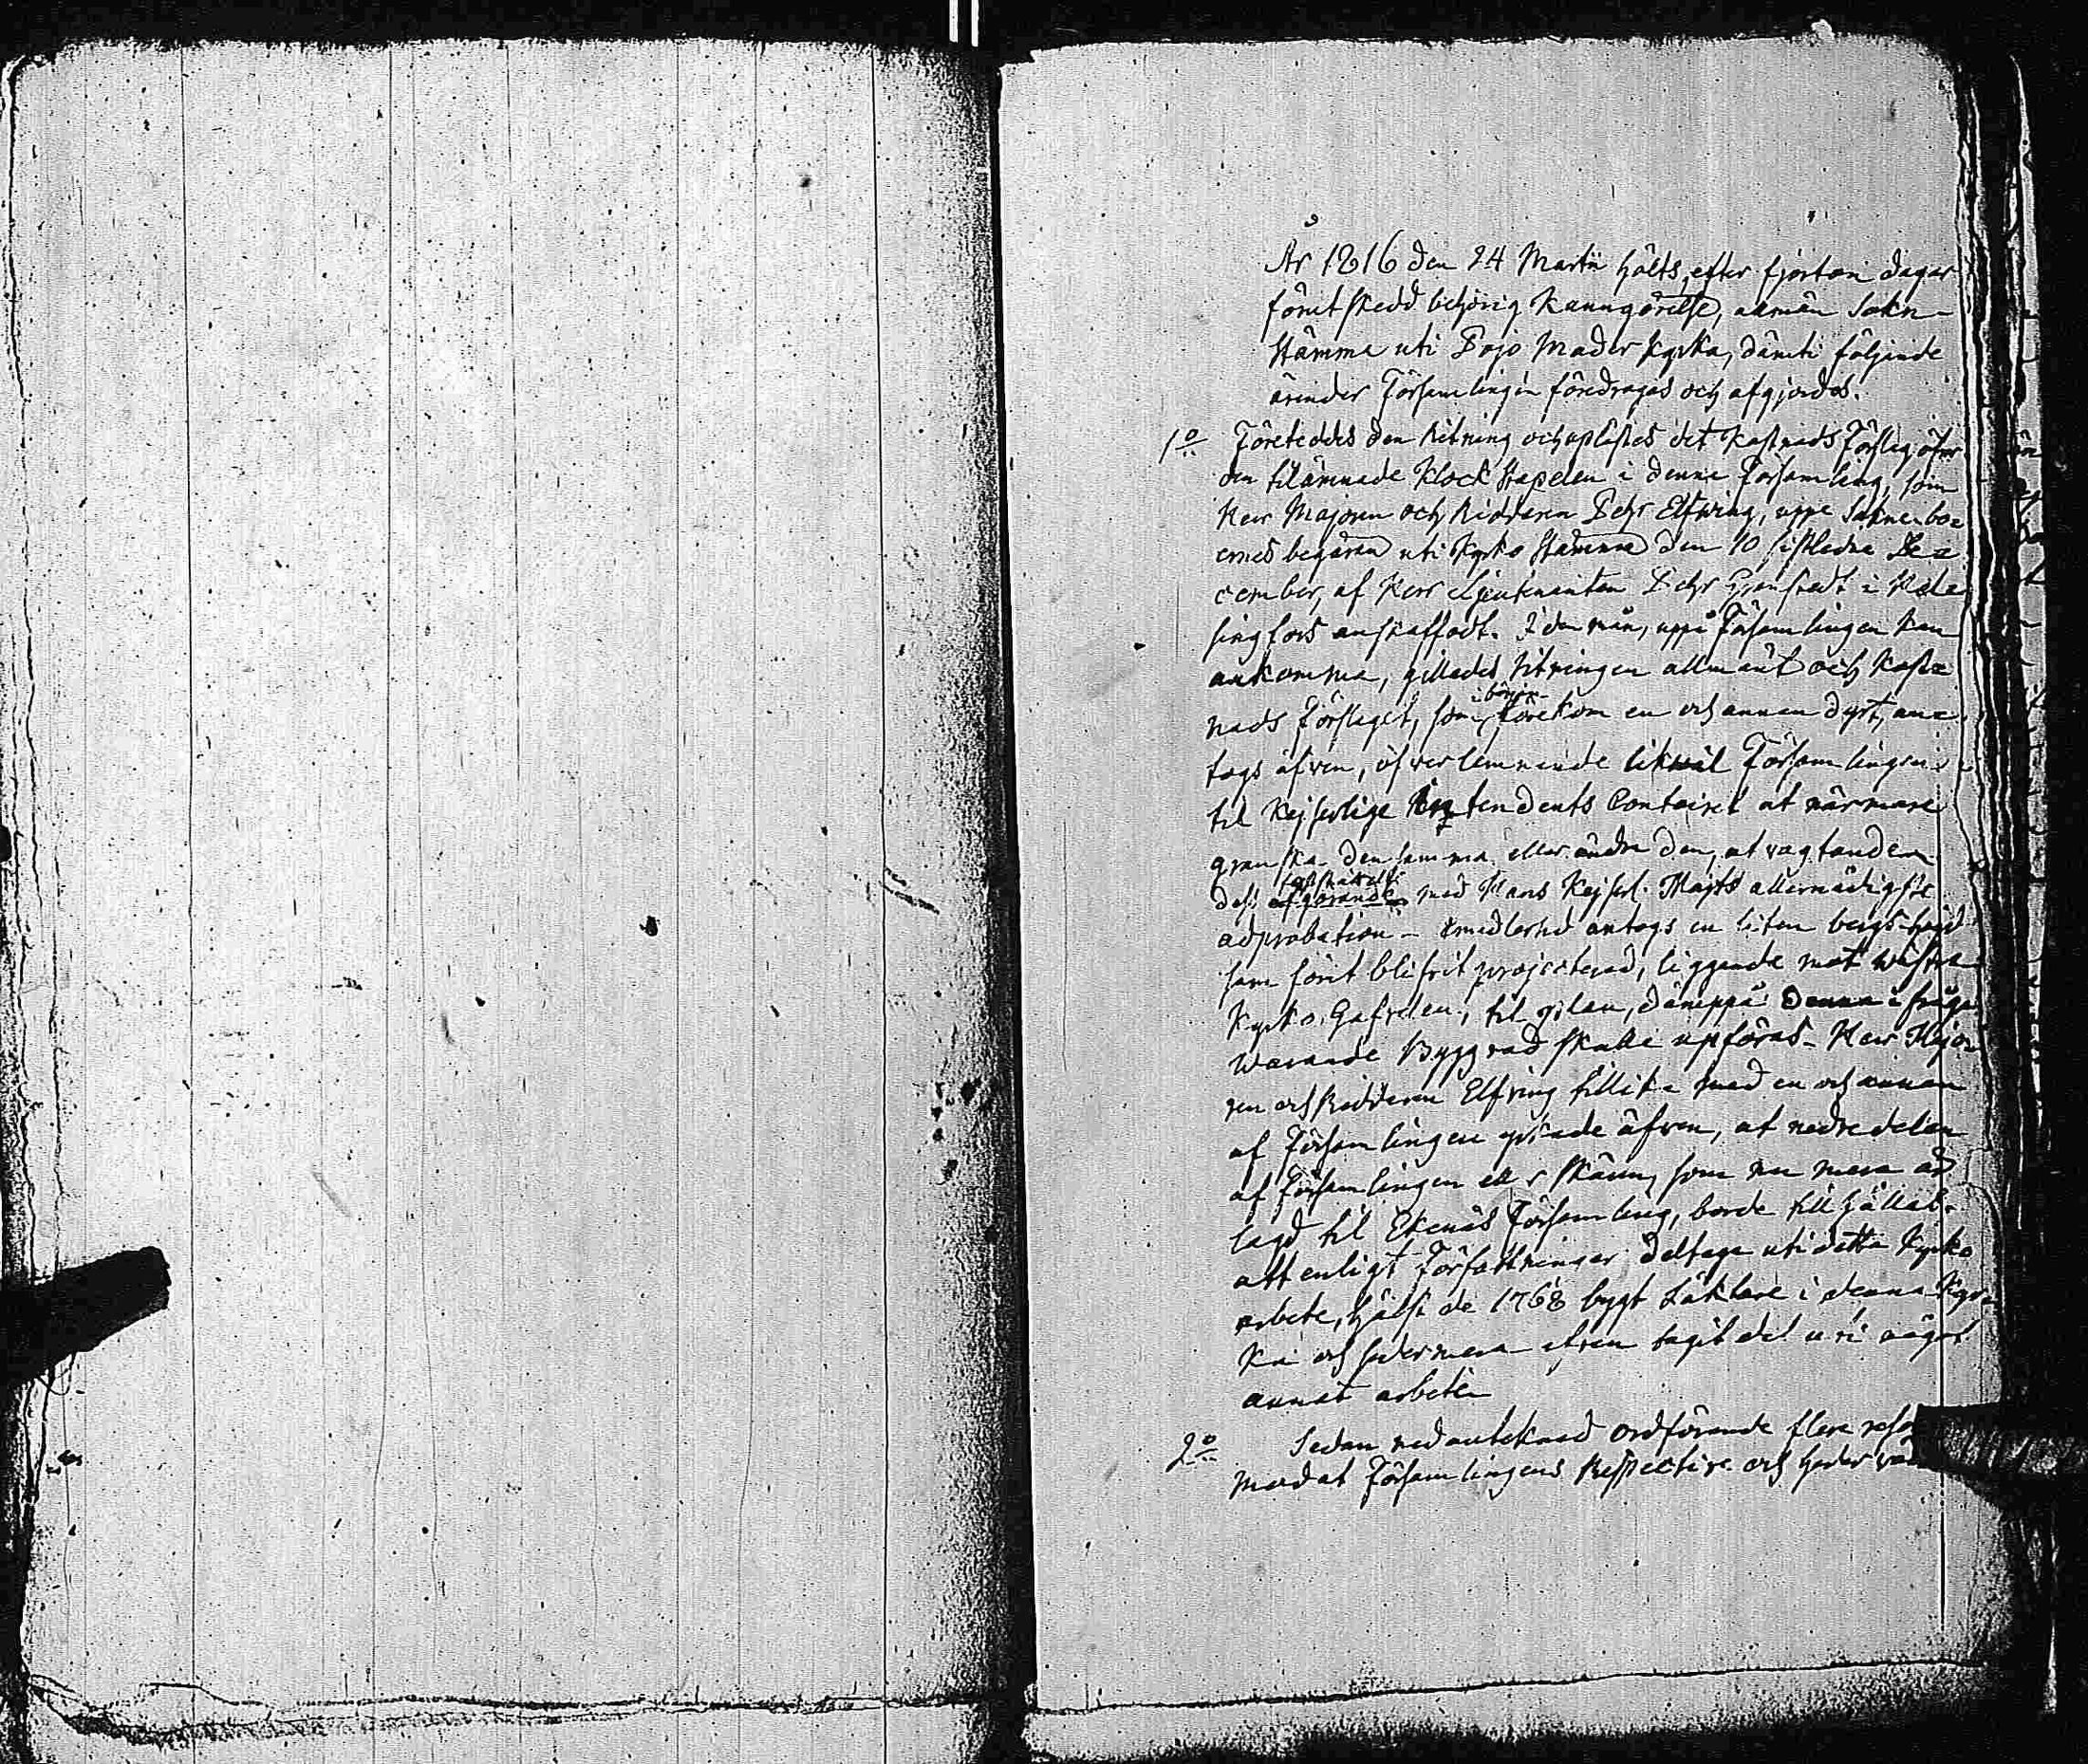 År 1816 den 24 Martii hölts, efter fjorton dagar
förut skedd behörig Kunngörelse, allmän Sokn-
Stämma uti Pojo Moder Kyrka, däruti följande
ärender Församlingen föredrogos och afgjordes.
1o Företeddes den Ritning och uplästes det Kostnads Förslag öfver
den tilämnade Klock Stapelen i denna Församling, som
Herr Majoren och Riddaren Pehr Elfving, uppå Sockne bo=
ernes begäran uti Kyrko Stämma den 10 sistledne De=
cember, af Herr Lieutenanten Pehr Granstedt i Hel=
singfors anskaffadt. I den mån, uppå Församlingen kan
ankomma, gillades Ritningen allmänt och Kost=
nads Förslaget, som i början förekom en och annan dyrt, an=
togs äfven, öfverlemnande likväl Församlingen
til Kejserlige Intendents Contoiret at närmare
granska densamma eller ändra den, at vagtande
dess afgörande med Hans Kejserl. Maj:ts allernådigste
adprobation - Emedlertid antogs en liten bergs-höjd
som förut blifvit projecterad, liggande mot westra
Kyrko Gafvelen, til plan, däruppå denna i fråga
warande Byggnad skulle upföras - Herr Majo=
ren och Riddaren Elfving tillika med en och annan
af Församlingen yrkade äfven, at nedre delen
af Församlingen eller Skärin, som nu mera är
lagd til Ekenäs Församling, borde tillhållas
att enligt Författningar deltaga uti detta Kyrko
arbete, hälst de 1768 bygt Läktare i denna Kyr=
ka och sedermera äfven tagit del uti något
annat arbete
2o Sedan nedanteknad Ordförande flere
med at Församlingens Respective och heder